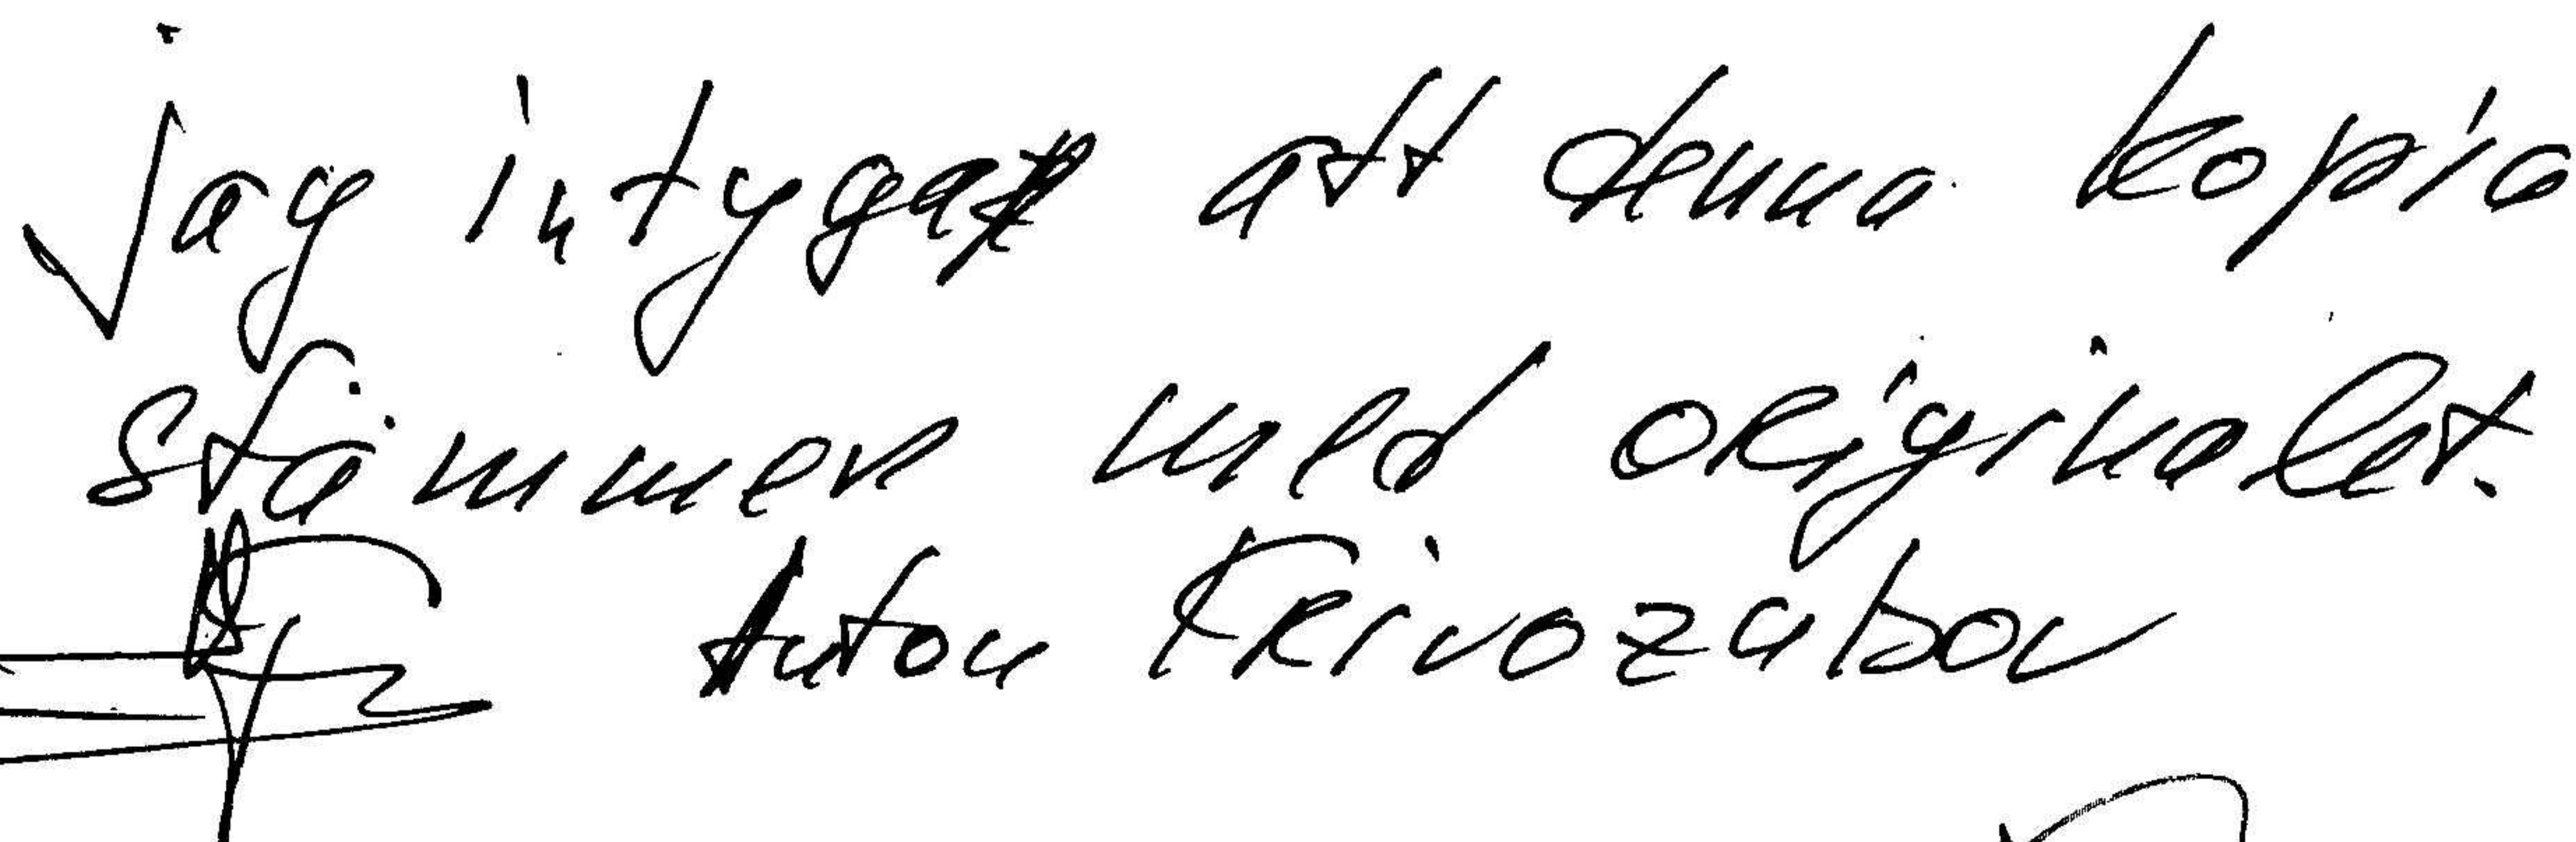 jag intygar att denna kopia
stämmer med originalet.
Anton Krivozubov